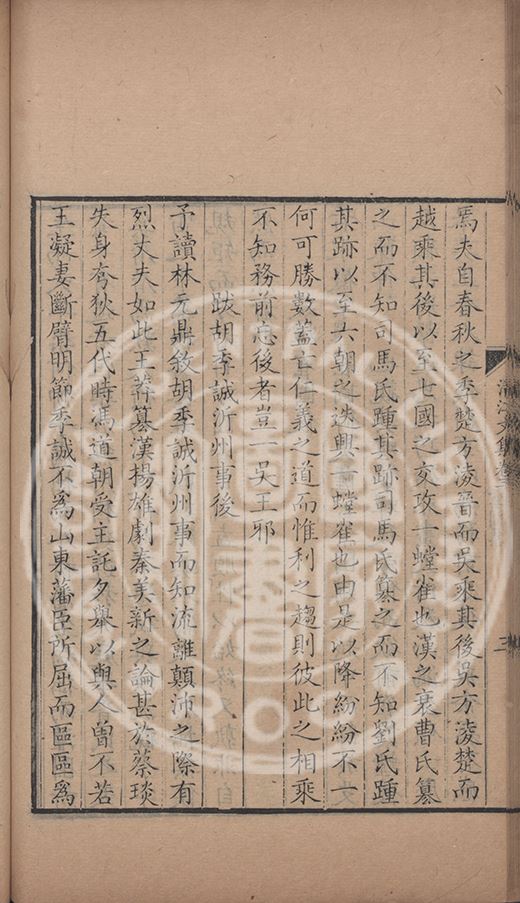 焉夫自春秋之季楚方淩晉而吳乘其後吳方淩楚而
越乘其後以至七國之交攻一螳雀也漢之衰曹氏篡
之而不知司馬氏踵其跡司馬氏篡之而不知劉氏踵
其跡以至六朝之迭興一螳雀也由是以降紛紛不一
何可勝數蓋亡仁義之道而惟利之趨則彼此之相乘
不知務前忘後者豈一吳王邪
跋胡季誠沂州事後
予讀林元鼎敘胡季誠沂州事而知流離顛沛之際有
烈丈夫如此王莽篡漢楊雄劇秦美新之論甚於蔡琰
失身夸狄五代時馮道朝受主託夕舉以與人曾不若
王凝妻斷臂明節季誠不爲山東藩臣所屈而區區爲
三